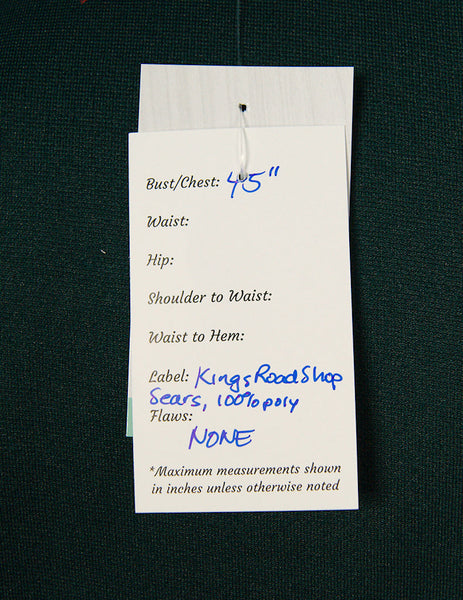 Bust/Chest: 45"
Waist:
Hip:
Shoulder to Waist:
Waist to Hem:
Label: Kings Road Shop
Sears, 100% poly
Flaws:
NONE
*Maximum measurements shown
in inches unless otherwise noted